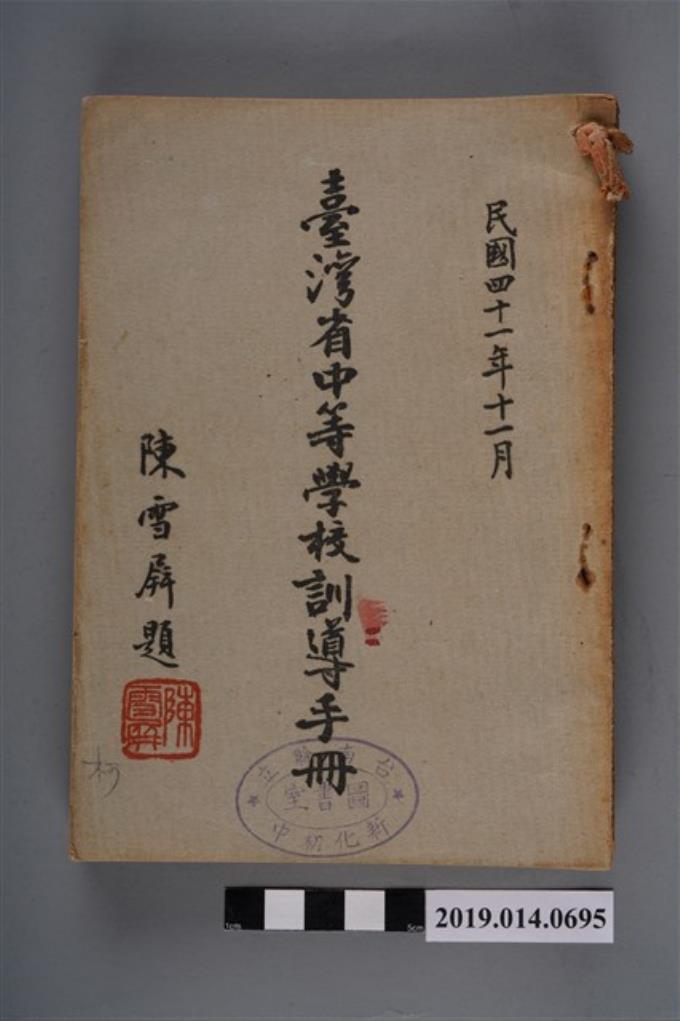 民國四十一年十一月
臺灣省中等學校訓導手冊
陳雪屏題
陳雪屏
台南縣立
圖書室
新化初中
柯
1cm
5cm
2019.014.0695